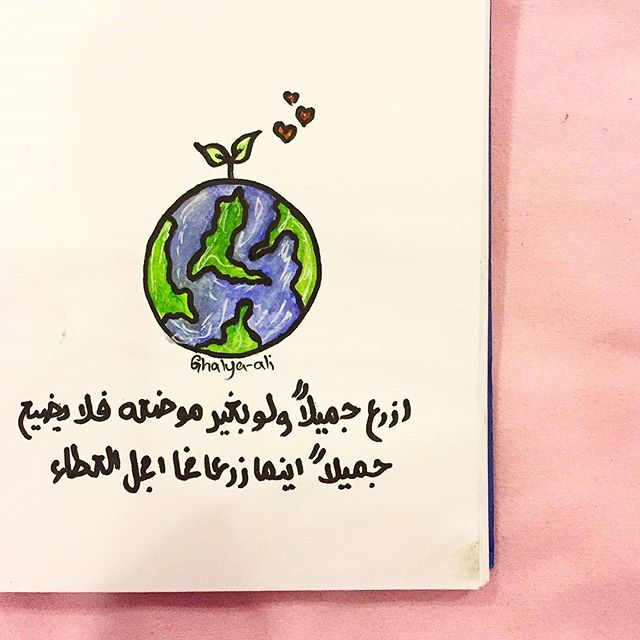 Ghalya-ali
ازرع جميلاً ولو بغير موضعه فلا يضيع
جميلاً اينما زرعا فما اجمل العطاء